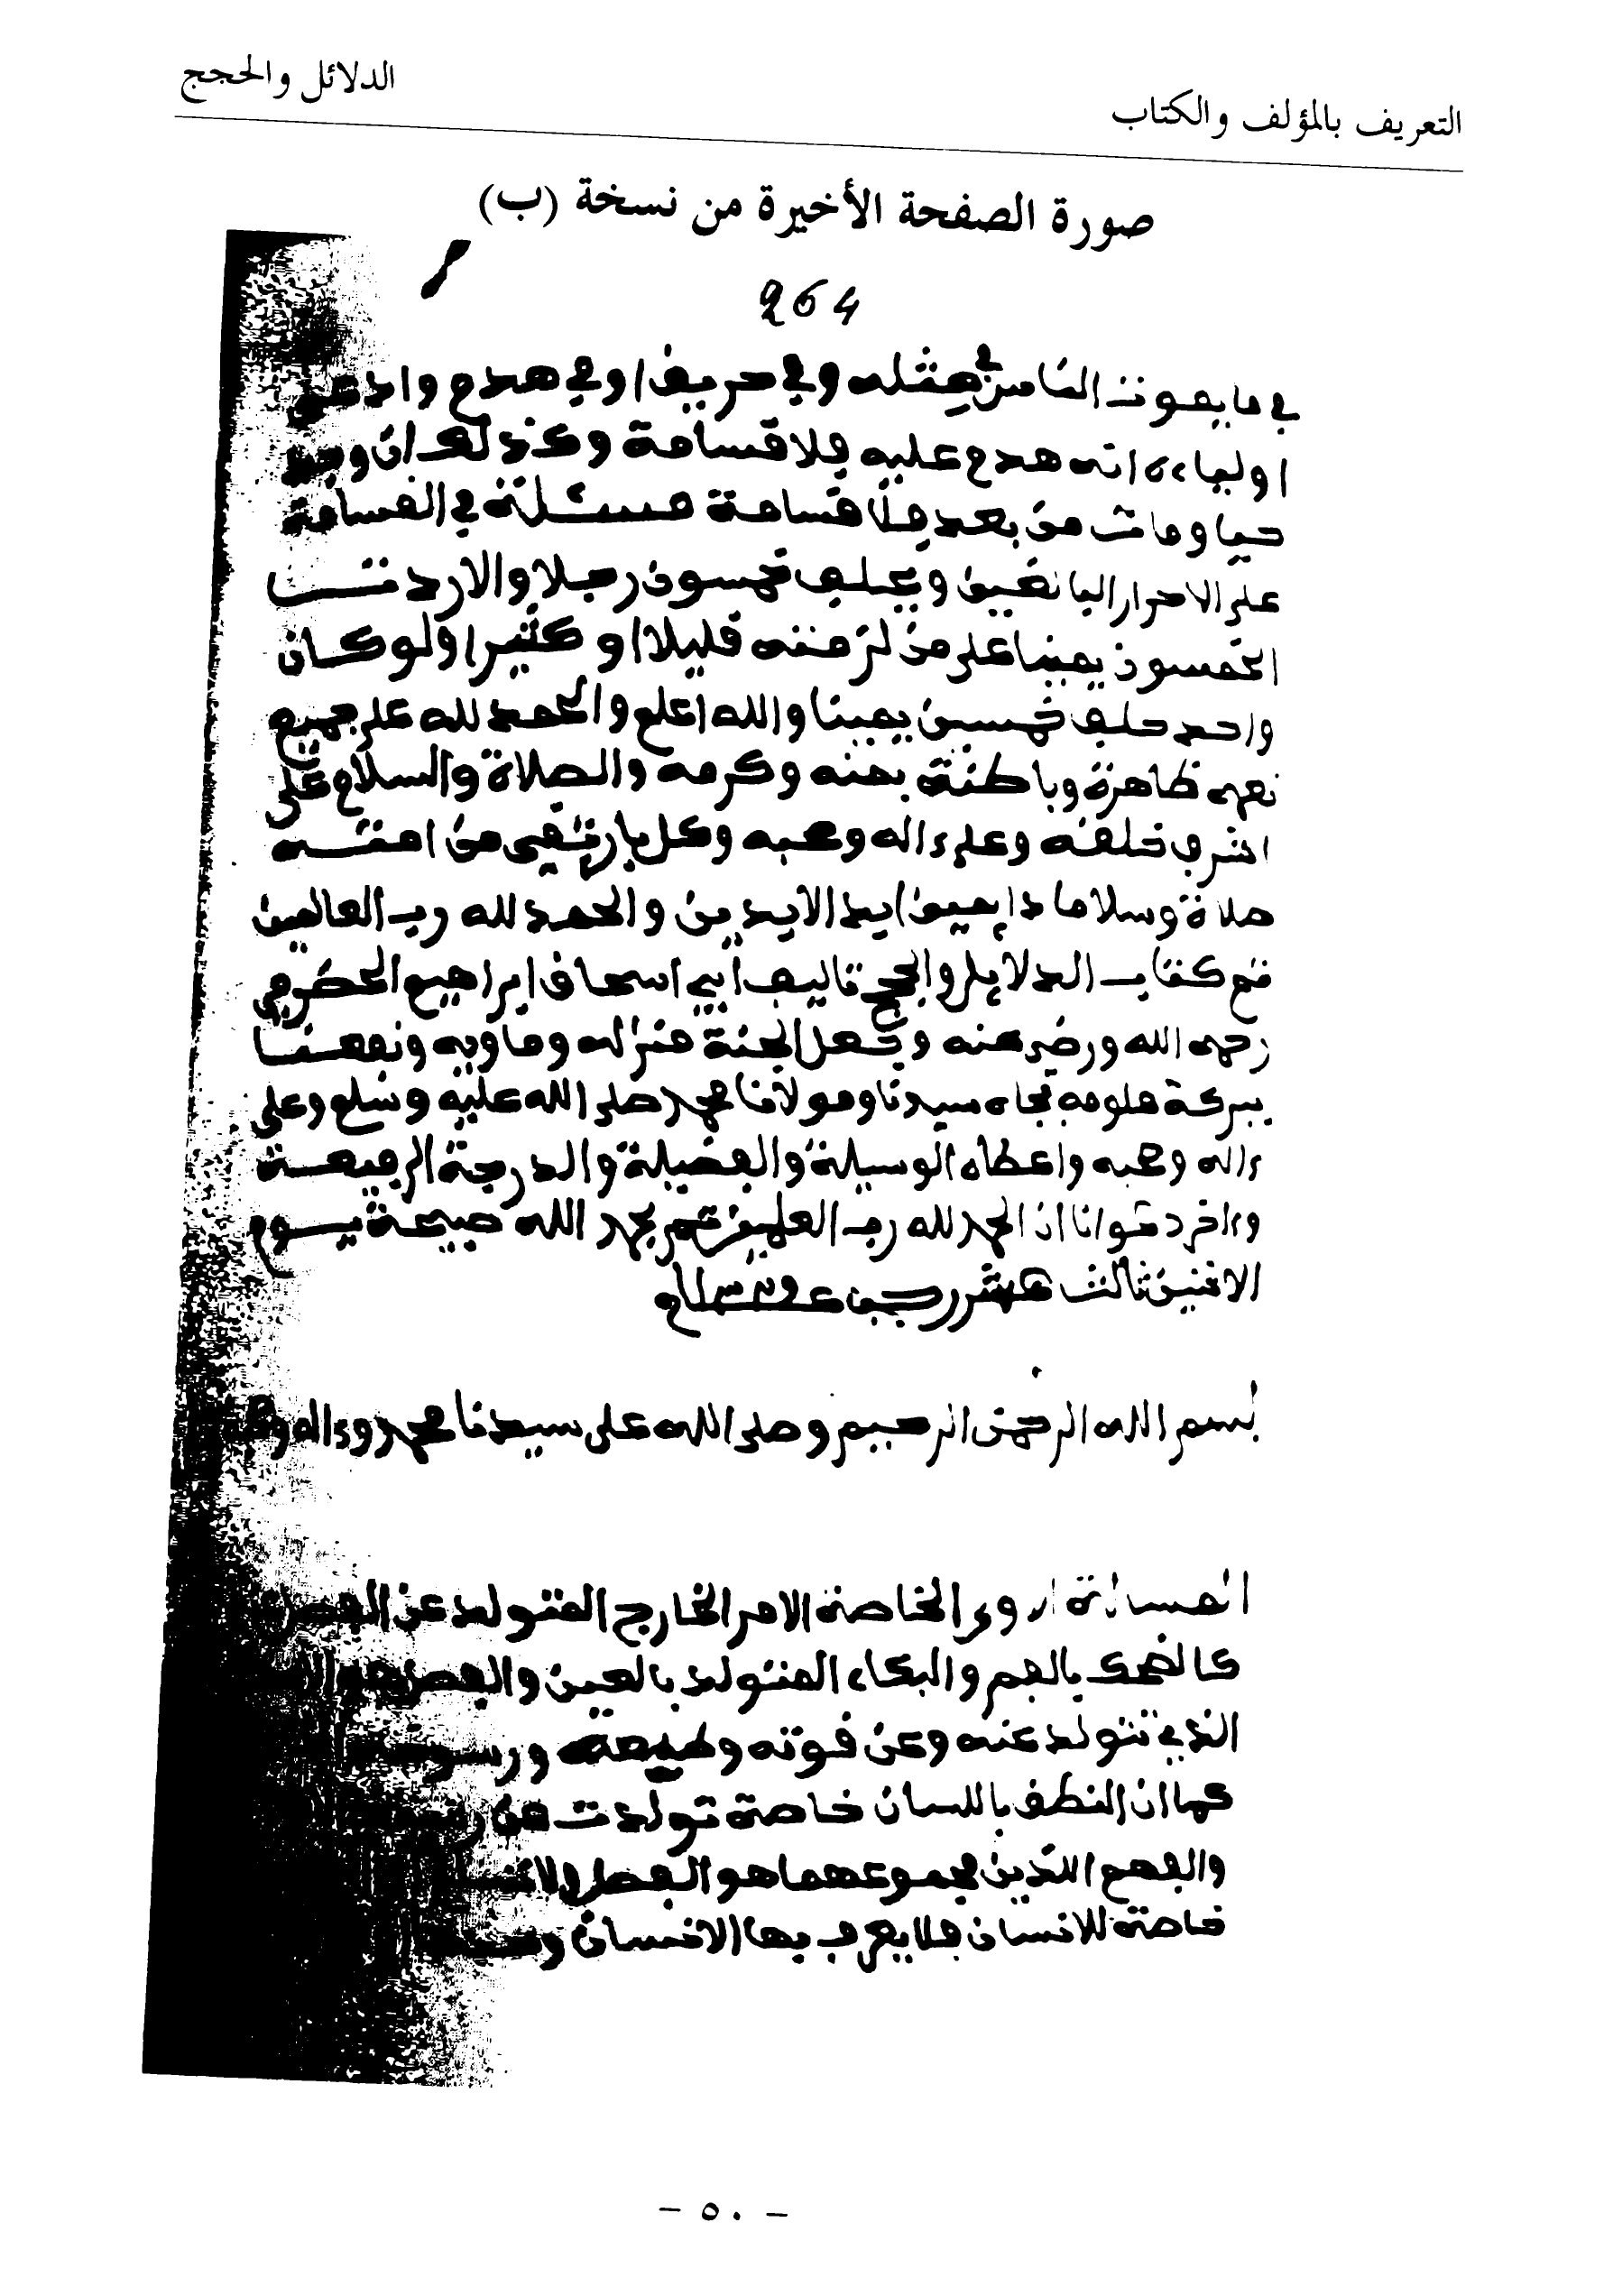 الدلائل والحجج
التعريف بالمؤلف والكتاب
صورة الصفحة الأخيرة من نسخة (ب)
264
في ما يموت الناس في مثله وفي حريق او في هدم وادعى
اولياءه انه هدم عليه فلا قسامة وكذلك ان وجد
حيا ومات من بعد فلا قسامة مسئلة في القسامة
على الاحرار البالغين ويحلف خمسون رجلا والا ردت
الخمسون يمينا على من لزمته قليلا او كثيرا ولو كان
واحد حلف خمسين يمينا والله اعلم والحمد لله على جميع
نعمه ظاهرة وباطنة بمنه وكرمه والصلاة والسلام على
اشرف خلقه وعلى ءاله وصحبه وكل بار تقي من امته
صلاة وسلاما دايمين ابد الابدين والحمد لله رب العالمين
تم كتاب الدلايل والحجج تاليف ابي اسحاق ابراهيم الحضرمي
رحمه الله ورضي عنه وجعل الجنة منزله وماويه ونفعنا
ببركة علومه بجاه سيدنا ومولانا محمد صلى الله عليه وسلم وعلى
ءاله وصحبه واعطاه الوسيلة والفضيلة والدرجة الرفيعة
وءاخر دعوانا ان الحمد لله رب العلمين تم بحمد الله صبيحة يوم
الاثنين ثالث عشر رجب
بسم الله الرحمن الرحيم وصلى الله على سيدنا محمد وءاله
المسألة الخاصة الامر الخارج المتولد عن الفصل
كالضحك بالفم والبكاء المتولد بالعين والفصل هو
الذي تتولد عنه وعن قوته وطبيعته
كما ان النطق باللسان خاصة تولدت عن
والفهم اللذين مجموعهما هو الفصل
خاصة للانسان فلا يعرف بها الانسان
- ٥٠ -